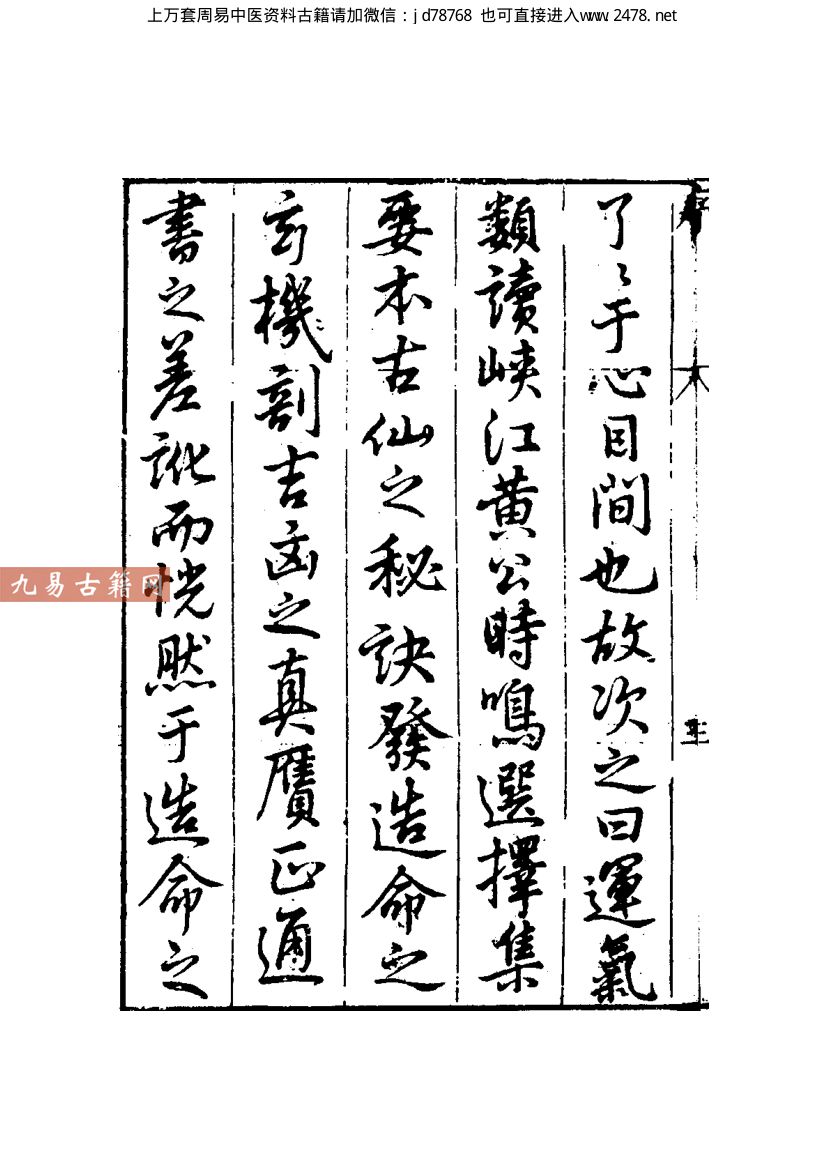 上万套周易中医资料古籍请加微信：jd78768 也可直接进入www.2478.net
了〻于心目間也故次之曰運氣
類讀峽江黄公時鳴選擇集
要本古仙之秘訣發造命之
玄機剖吉凶之真贋正通
書之差訛而恍然于造命之
九易古籍网